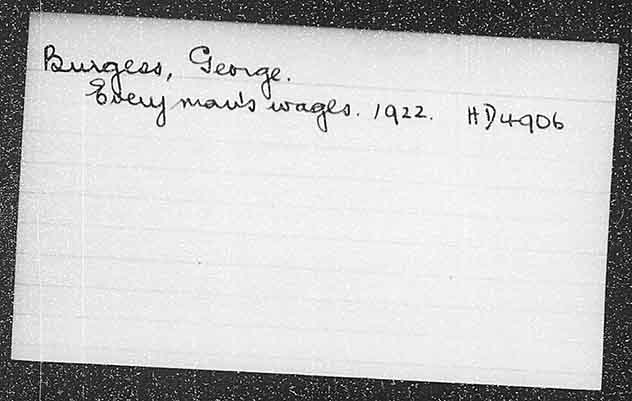 Burgess, George.
Every man's wages. 1922. HD4906